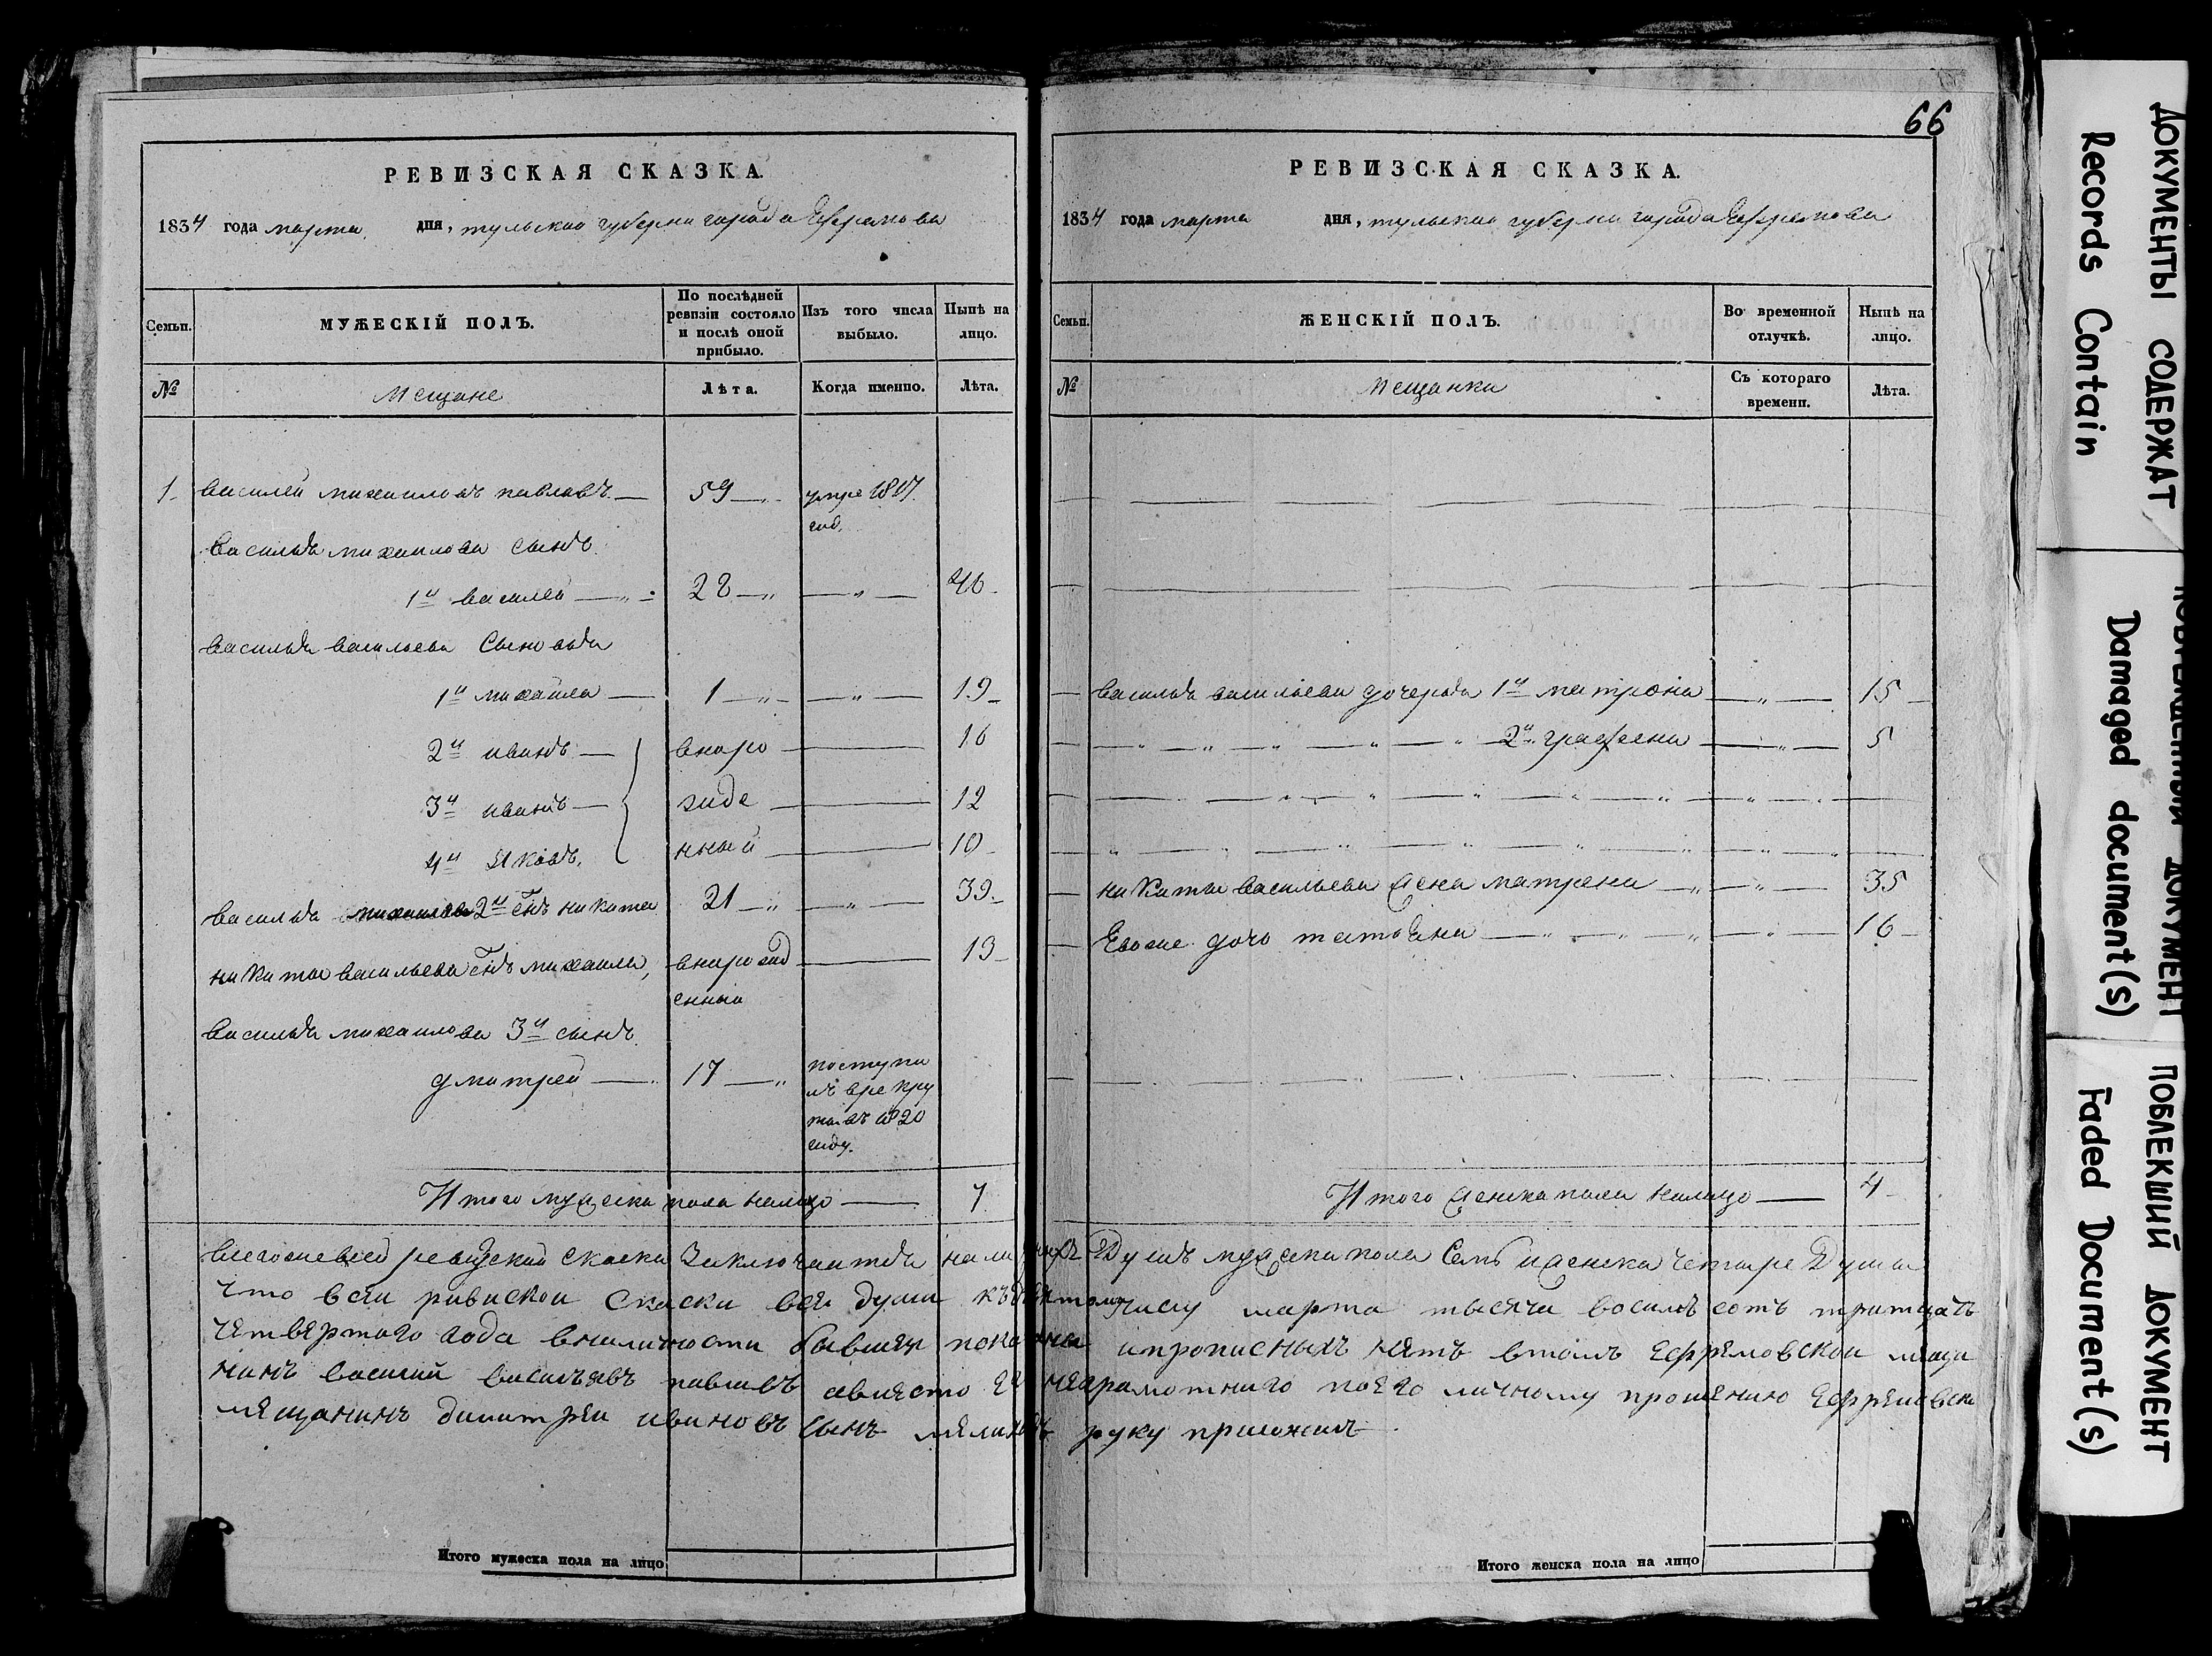 66
РЕВИЗСКАЯ СКАЗКА.
1834 года марта дня, тульскао губерни города Ефремова
Семьи.
МУЖЕСКІЙ ПОЛЪ.
По послѣдней ревизіи состояло и послѣ оной прибыло.
Изъ того числа выбыло.
Нынѣ на лицо.
№
Мещане
Лѣта.
Когда именно.
Лѣта.
1 василей михаиловъ павлавъ 59 умре 1817.
год.
василья михаилова сынъ
1й василей 28 46
василья васильева Сыновья
1й михаила 1 19
2й иванъ вноро 16
3й иванъ зиде 12
4й Яковъ. нный 10
василья михаилова 2й снъ никита 21 39
никиты васильева снъ михаила, внарожд 13
енный
василья михаилова 3й сынъ
дмитрей 17 поступи
лъ врекру
ты въ 1820
году.
Итого мужеска пола налицо 7
РЕВИЗСКАЯ СКАЗКА.
1834 года марта дня, тульскао губерни города Ефремова
Семьи.
ЖЕНСКІЙ ПОЛЪ.
Во временной отлучкѣ.
Нынѣ на лицо.
№
Мещанки
Съ котораго времени.
Лѣта.
василья васильева дочеръя 1я матрона 15
2я графена 5
никиты васильева жена матрена 35
Евоже дочь татьяна 16
Итого женска пола налицо 4
всегосие всей ревизской скаски Заключаитъя наличнихъ Душъ мужеска пола Семь и женска четыре Души
что всеи ривиской Скаски все души числу марта тысяча восимъ сотъ тритцать
четвертого года вналичности бывшея показаны ипрописныхъ нетъ втомъ Ефремовской меща
нинъ василий васильевъ павлавъ авместо ево неграмотнаго поего личному прошению Ефремовски
мещанинъ димитреи ивановъ сынъ руку приложилъ
Итого мужеска пола на лицо
Итого женска пола на лицо
ДОКУМЕНТЫ СОДЕРЖАТ
Records Contain
ПОВРЕЖДЕННЫЙ ДОКУМЕНТ
Damaged document(s)
ПОБЛЕКШИЙ ДОКУМЕНТ
Faded Document(s)